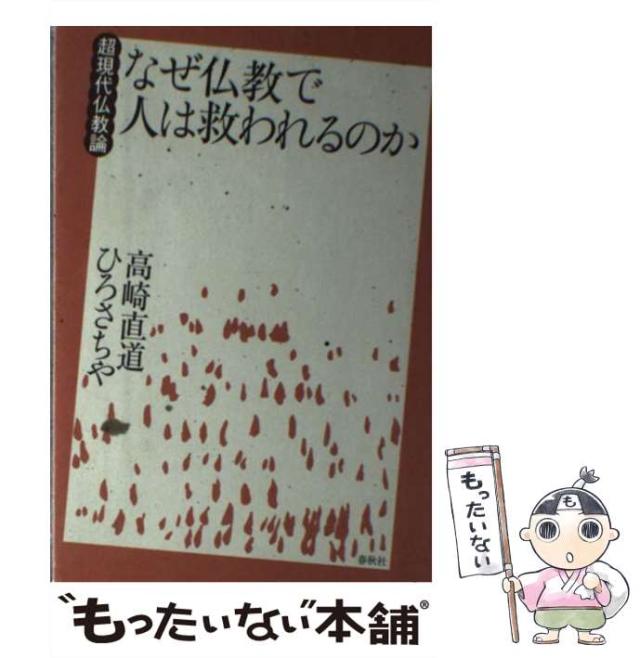 超現代仏教論
なぜ仏教で
人は救われるのか
高崎直道
ひろさちや
春秋社
もったいない
も
"もったいない"本舗®